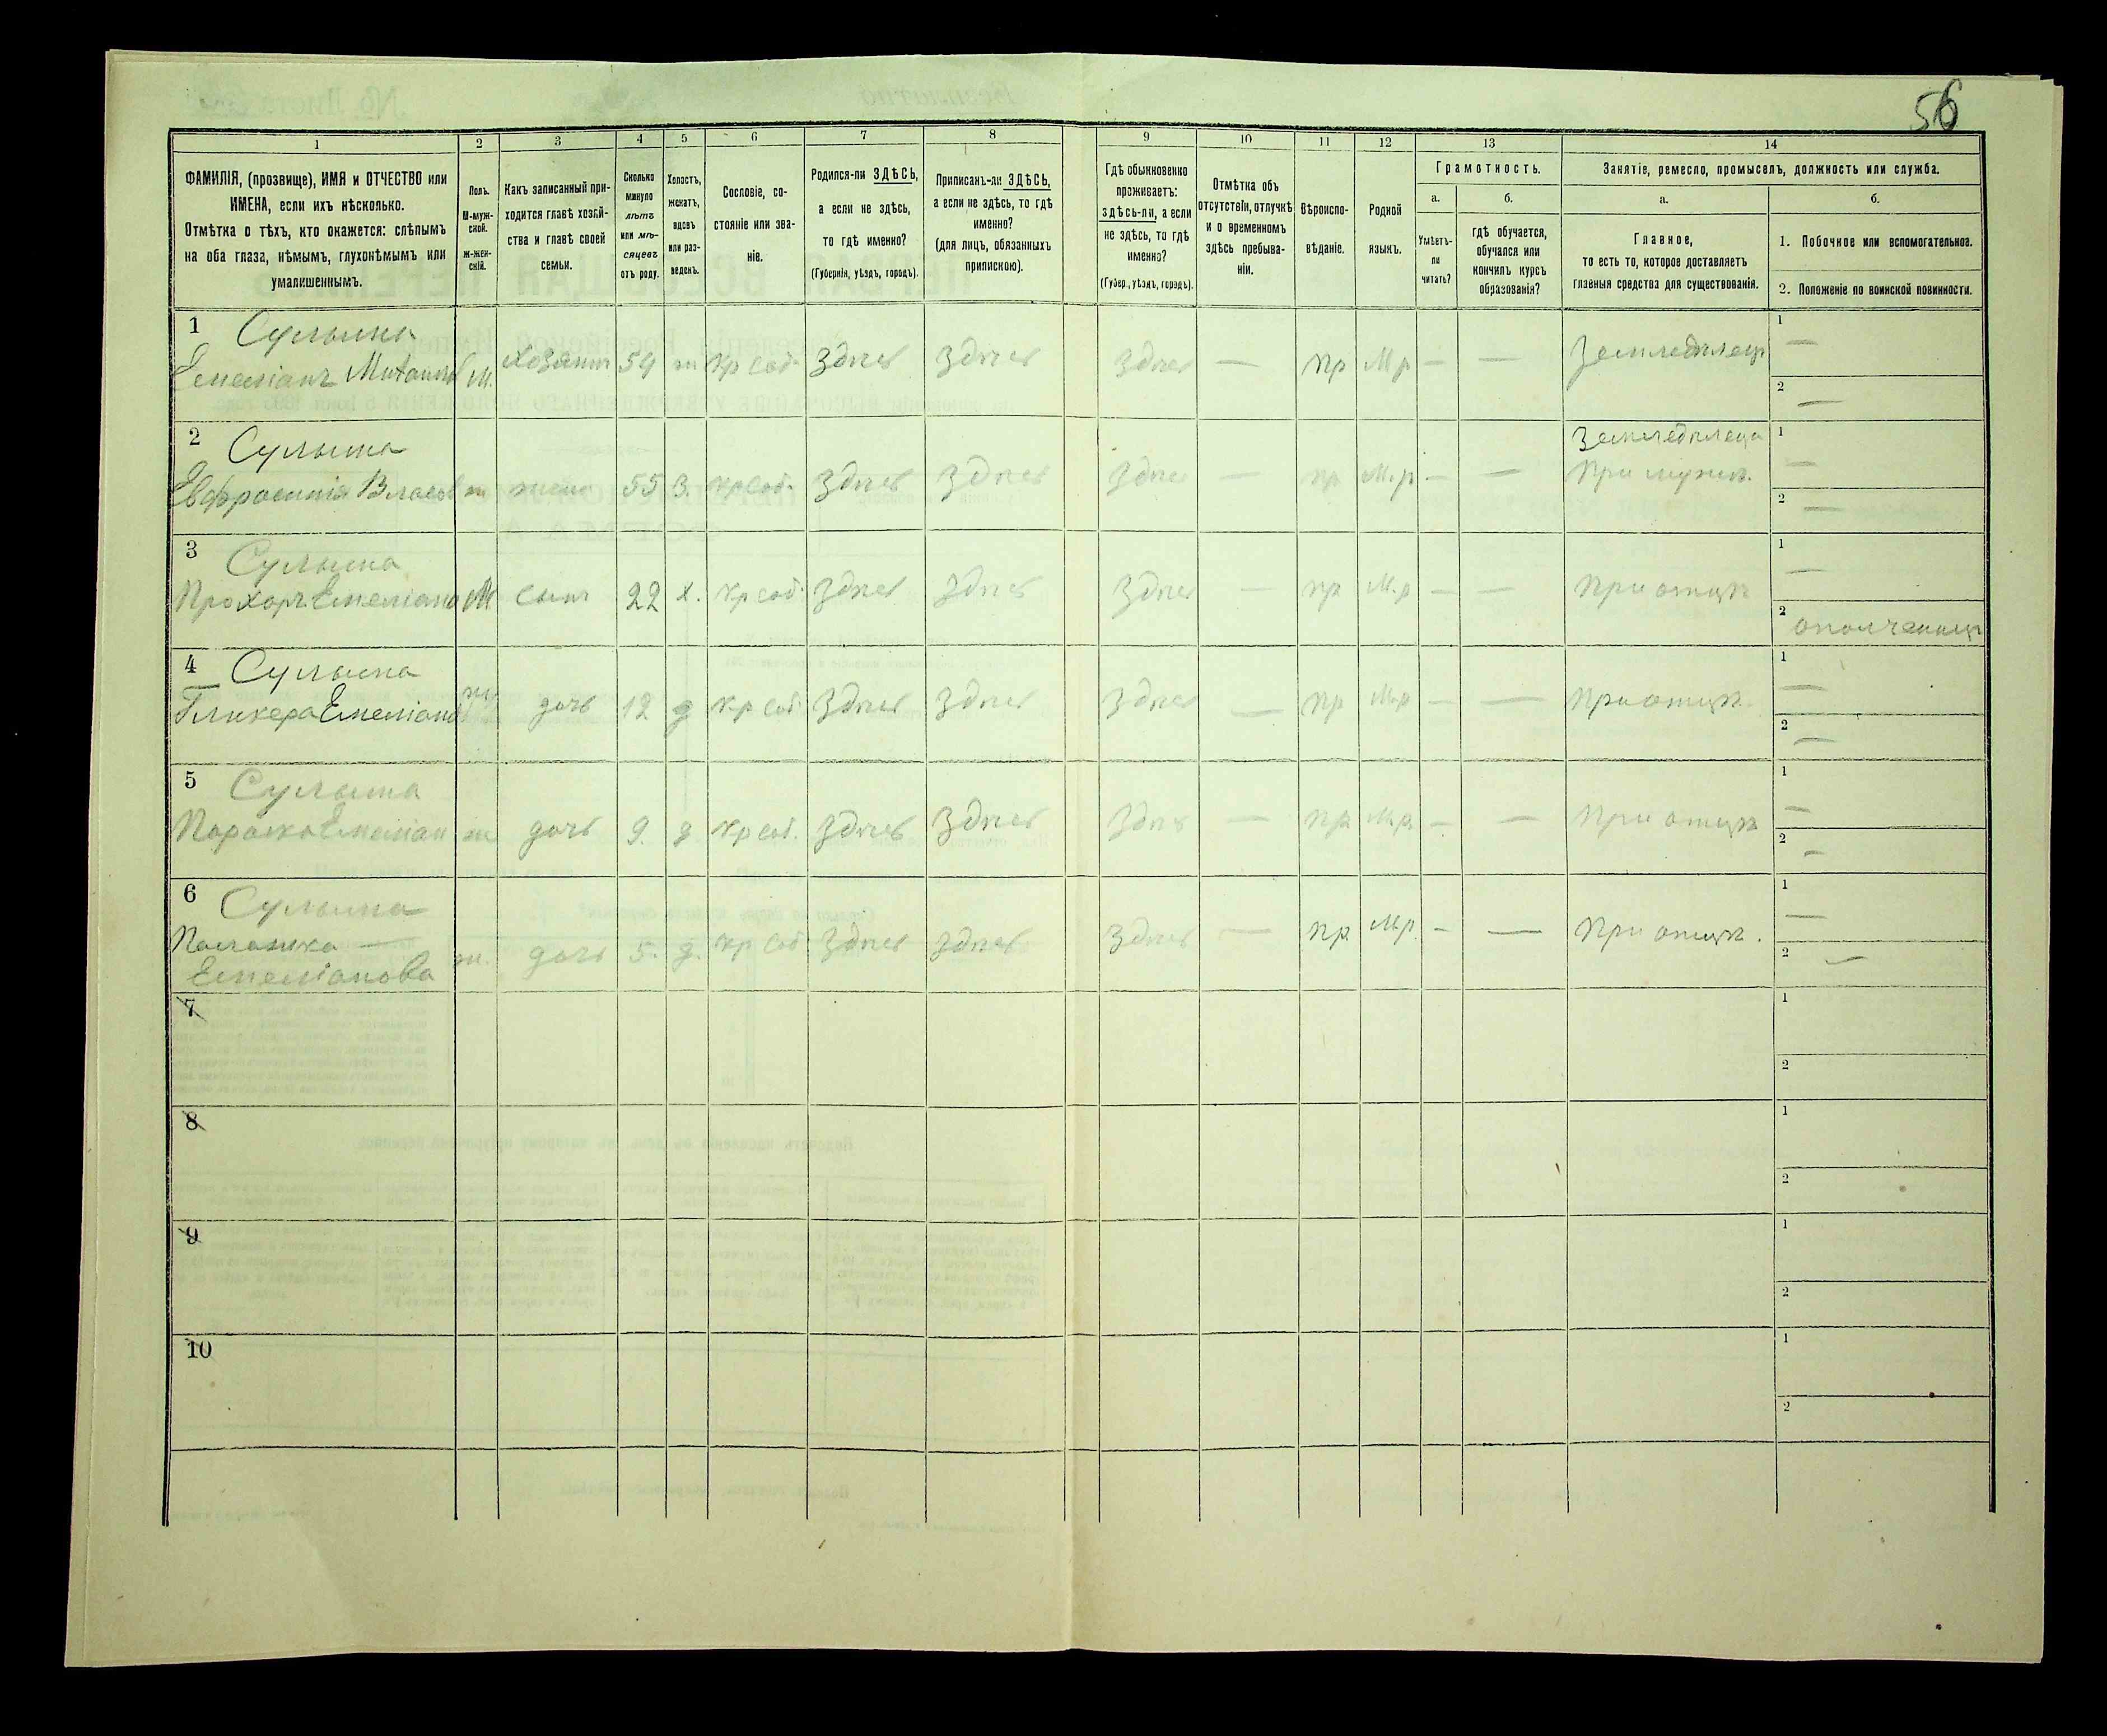 56
1 2 3 4 5 6 7 8 9 10 11 12 13 14
ФАМИЛІЯ, (прозвище), ИМЯ и ОТЧЕСТВО или
ИМЕНА, если ихъ нѣсколько.
Отмѣтка о тѣхъ, кто окажется: слѣпымъ
на оба глаза, нѣмымъ, глухонѣмымъ или
умалишеннымъ.
Полъ.
М-муж-
ской.
ж-жен-
скій.
Какъ записанный при-
ходится главѣ хозяй-
ства и главѣ своей
семьи.
Сколько
минуло
лѣтъ
или мѣ-
сяцевъ
отъ роду.
Холостъ,
женатъ,
вдовъ
или раз-
веденъ.
Сословіе, со-
стояніе или зва-
ніе.
Родился-ли ЗДѢСЬ,
а если не здѣсь,
то гдѣ именно?
(Губернія, уѣздъ, городъ).
Приписанъ-ли ЗДѢСЬ,
а если не здѣсь, то гдѣ
именно?
(для лицъ, обязанныхъ
припискою).
Гдѣ обыкновенно
проживаетъ:
здѣсь-ли, а если
не здѣсь, то гдѣ
именно?
(Губер., уѣздъ, городъ).
Отмѣтка объ
отсутствіи, отлучкѣ
и о временномъ
здѣсь пребыва-
ніи.
Вѣроиспо-
вѣданіе.
Родной
языкъ.
Грамотность.
а.
Умѣетъ-
ли
читать?
б.
гдѣ обучается,
обучался или
кончилъ курсъ
образованія?
Занятіе, ремесло, промыселъ, должность или служба.
а.
Главное,
то есть то, которое доставляетъ
главныя средства для существованія.
б.
1. Побочное или вспомогательное.
2. Положеніе по воинской повинности.
1 Сулыма
Емеліанъ М. Хозяинъ 54 ж кр соб. Здѣсь Здѣсь Здѣсь — пр Мр — — Земледѣлецъ 1 —
2 —
2 Сулыма Земледѣлецъ 1 —
Евфросинія Власов ж жена 55 З. кр соб. Здѣсь Здѣсь Здѣсь — пр М.р — — При мужѣ.
2 —
3 Сулыма 1 —
Прохоръ Емеліано М сынъ 22 х. кр соб. Здѣсь Здѣсь Здѣсь — пр М.р — — При отцѣ
2 ополченецъ
4 Сулыма 1 —
Гликера Емеліано ж дочь 12 д кр соб. Здѣсь Здѣсь Здѣсь — пр М.р — — При отцѣ.
2 —
5 Сулыма 1 —
Параска Емеліан ж дочь 9. д кр соб. Здѣсь Здѣсь Здѣсь — пр М.р. — — При отцѣ
2 —
6 Сулыма 1 —
Палажка — ж. дочь 5. д. кр соб Здѣсь Здѣсь Здѣсь — пр М.р. — — При отцѣ.
Емеліанова 2 —
7 1
2
8 1
2
9 1
2
10 1
2